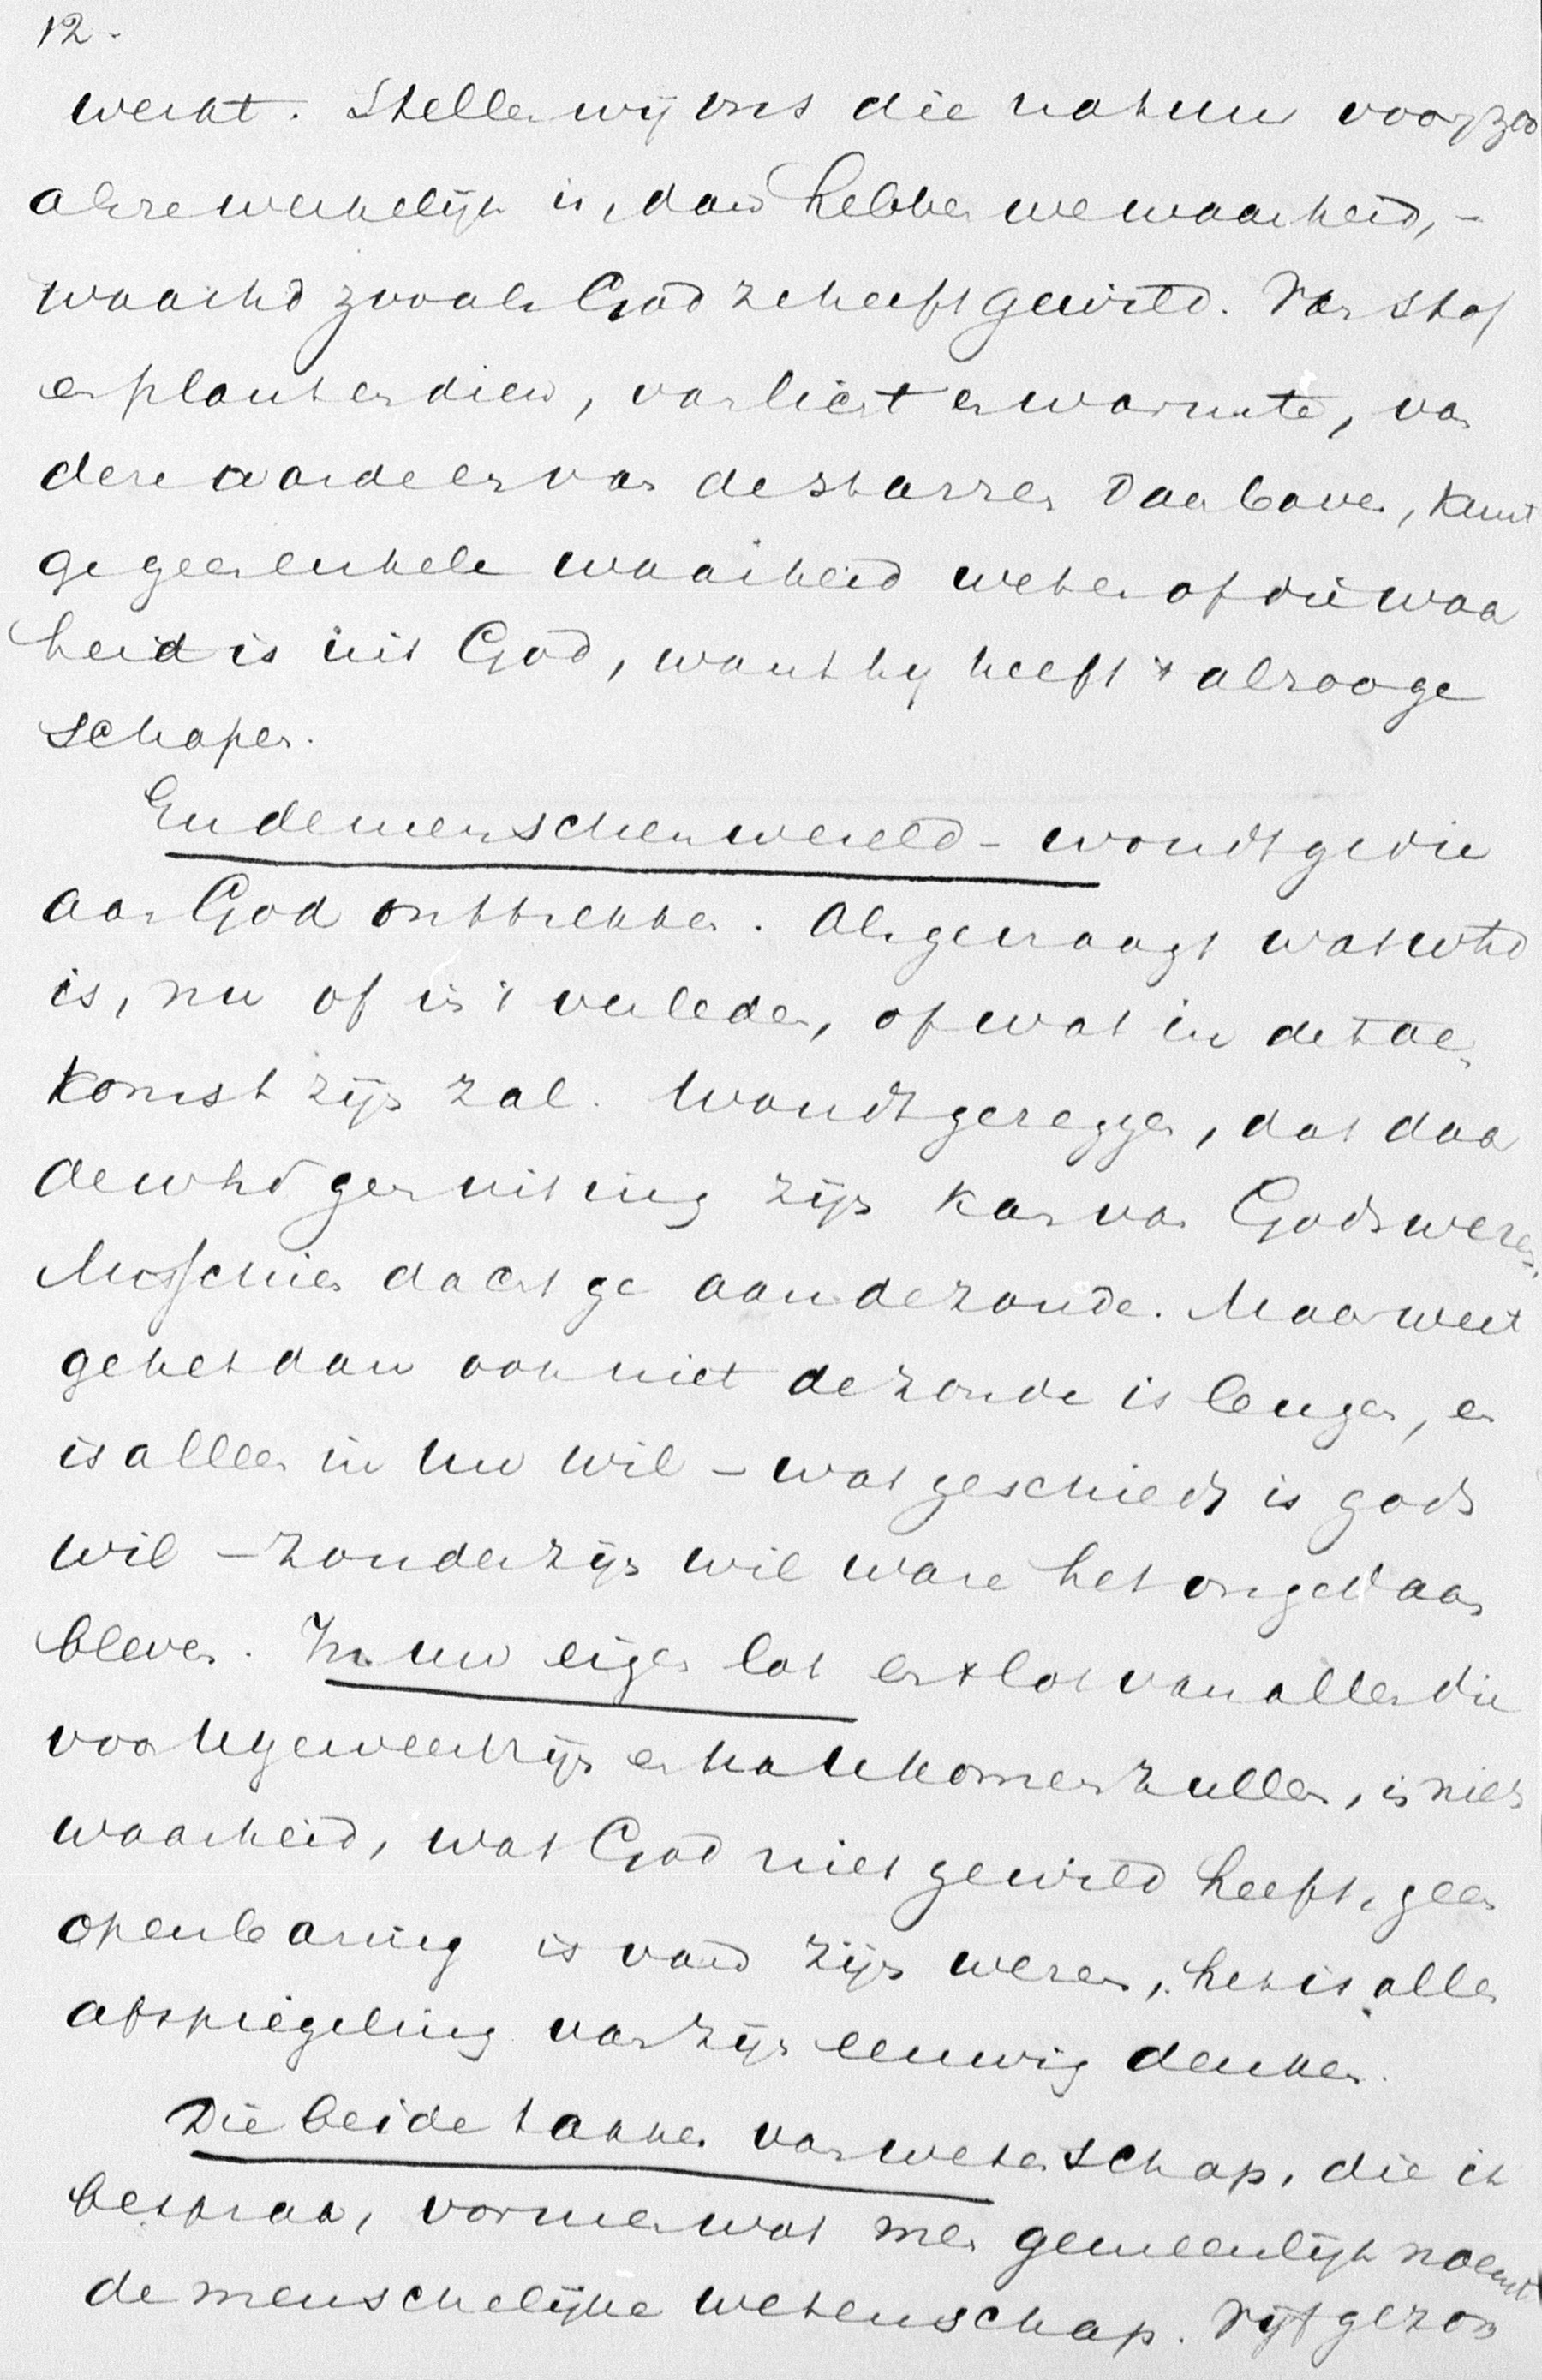 12.
werkt. Stellen wij ons die natuur voor, zoo
als ze werkelijk is, dan hebben we waarheid, -
waarhd zooals God ze heeft gewild. Van stof
en plant en dier, van licht en warmte, van
deze aarde en van de starren daarboven, kunt
ge geen enkele waarheid weten of die waar
heid is uit God, want hij heeft 't alzoo ge
schapen.
En de menschenwereld - woudt ge die
aan God onttrekken. Als gevraagt wat whd
is, nu of in 't verleden, of wat in de toe
komst zijn zal. Woudt ge zeggen, dat daar
de whd geen uiting zijn kan van Gods wezen.
Misschien dacht ge aan de zonde. Maar weet
ge het dan ook niet de zonde is leugen, en
is alleen in Uw wil - wat geschiedt is gods
wil - zonder zijn wil ware het ongedaan
bleven. In uw eigen lot en 't lot van allen die
voor U geweest zijn en na U komen zullen, is niets
waarheid, wat God niet gewild heeft, geen
openbaring is van zijn wezen, het is alles
afspiegeling van zijn eeuwig denken.
Die beide takken van wetenschap, die ik
besprak, vormen wat men gemeenlijk noemt
de menschelijke wetenschap. Vijf gezon